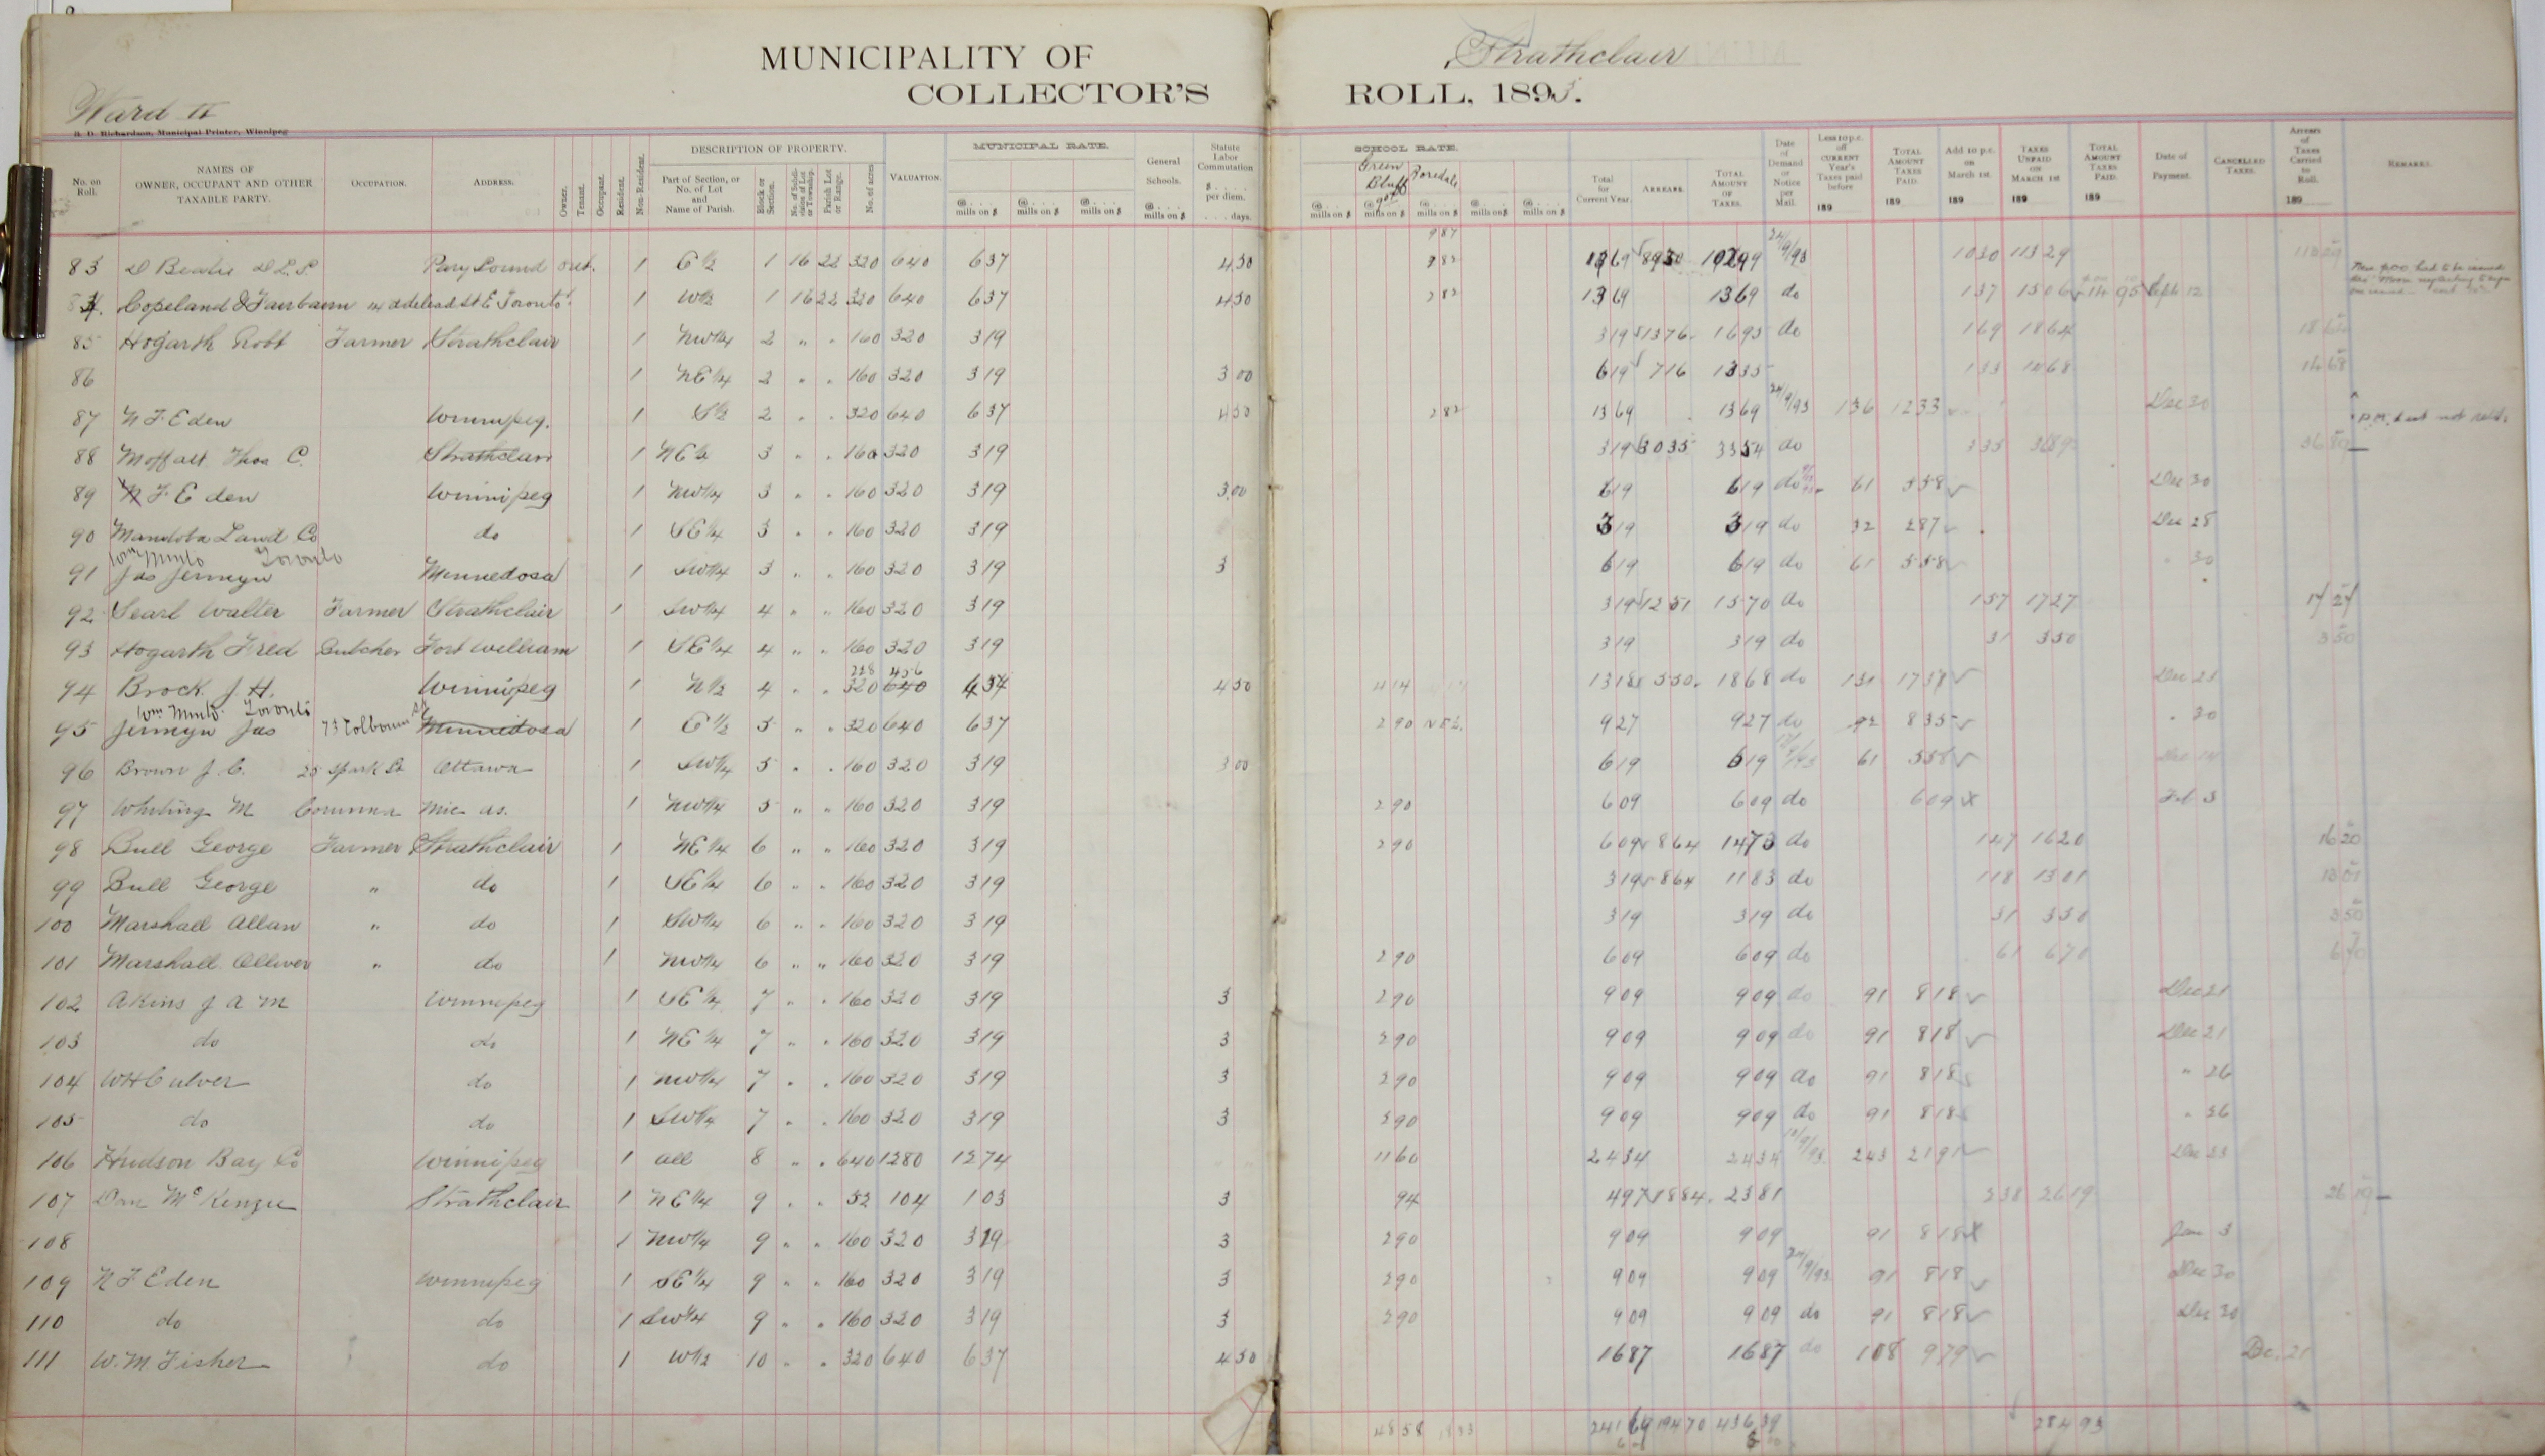 MUNICIPALITY OF Strathclair
COLLECTOR'S ROLL, 1893.
Ward II
R. D. Richardson, Municipal Printer, Winnipeg
No. on Roll. NAMES OF OWNER, OCCUPANT AND OTHER TAXABLE PARTY. OCCUPATION. ADDRESS. Owner. Tenant. Occupant. Resident. Non-Resident. DESCRIPTION OF PROPERTY. Part of Section, or No. of Lot and Name of Parish. Block or Section. Parish Lot or Range. No. of acres VALUATION. MUNICIPAL RATE. @ mills on $ @ mills on $ @ mills on $ General Schools. @ mills on $ Statute Labor Commutation $ per diem. days. SCHOOL RATE. Green Bluff @ mills on $ @ mills on $ @ mills on $ @ mills on $ @ mills on $ Total for Current Year. ARREARS. TOTAL AMOUNT OF TAXES. Date of Demand or Notice per Mail. Less 10 p.c. off CURRENT Year's Taxes paid before 189 TOTAL AMOUNT TAXES PAID. 189 Add 10 p.c. on March 1st. 189 TAXES UNPAID ON MARCH 1st 189 TOTAL AMOUNT TAXES PAID. 189 Date of Payment. CANCELLED TAXES. Arrears of Taxes Carried to Roll. 189 REMARKS.
83 D Beatie D.L.S Pary Sound ont. 1 E 1/2 1 16 22 320 640 637 4 50 13 69 89 30 102 99 24/9/93 10 30 113 29
84. Copeland & Fairbairn 14 adelead St E Toronto 1 W 1/2 1 16 22 320 640 637 4 50 2 82 13 69 13 69 do 1 37 15 06 14 95 Sept 12
85 Hogarth Robt Farmer Strathclair 1 NW 1/4 2 " " 160 320 319 3 19 13 76 16 95 do 1 69 18 64 18 64
86 1 NE 1/4 2 " " 160 320 319 3 00 6 19 7 16 13 35 1 33 14 68 14 68
87 N F Eden Winnipeg. 1 S 1/2 2 " " 320 640 637 4 50 2 82 13 69 13 69 24/9/93 1 36 12 33 Dec 30
88 Moffatt Thos C. Strathclair 1 NE 1/4 3 " " 160 320 319 3 19 30 35 33 54 do 3 35 36 89 36 89
89 N F Eden Winnipeg 1 NW 1/4 3 " " 160 320 319 3 00 6 19 6 19 do 61 5 58 Dec 30
90 Manitoba Land Co do 1 SE 1/4 3 " " 160 320 319 3 19 3 19 do 32 2 87 Dec 28
Wm Minto Toronto
91 Jas Jermyn Minnedosa 1 SW 1/4 3 " " 160 320 319 3 6 19 6 19 do 61 5 58 " 30
92 Searl Walter Farmer Strathclair 1 SW 1/4 4 " " 160 320 319 3 19 12 51 15 70 do 1 57 17 27 17 27
93 Hogarth Fred Butcher Fort William 1 SE 1/4 4 " " 160 320 319 3 19 3 19 do 31 3 50 3 50
228 456
94 Brock J. H. Winnipeg 1 N 1/2 4 " " 320 640 454 4 50 4 14 13 18 5 50 18 68 do 1 31 17 37 Dec 23
Wm Minto. Toronto
95 Jermyn Jas 73 Colborne St Minnedosa 1 E 1/2 5 " " 320 640 637 2 90 9 27 9 27 do 92 8 35 " 30
96 Brown J. C. 25 Spark St Ottawa 1 SW 1/4 5 " " 160 320 319 3 00 6 19 6 19 61 5 58 Dec 14
97 Whiting M Corunna Mic us. 1 NW 1/4 5 " " 160 320 319 2 90 6 09 6 09 do 6 09 X Feb 3
98 Bull George Farmer Strathclair 1 NE 1/4 6 " " 160 320 319 2 90 6 09 8 64 14 73 do 1 47 16 20 16 20
99 Bull George " do 1 SE 1/4 6 " " 160 320 319 3 19 8 64 11 83 do 1 18 13 01 13 01
100 Marshall Allan " do 1 SW 1/4 6 " " 160 320 319 3 19 3 19 do 31 3 50 3 50
101 Marshall Olliver " do 1 NW 1/4 6 " " 160 320 319 2 90 6 09 6 09 do 61 6 70 6 70
102 Akins J A M Winnipeg 1 SE 1/4 7 " " 160 320 319 3 2 90 9 09 9 09 do 91 8 18 Dec 21
103 do do 1 NE 1/4 7 " " 160 320 319 3 2 90 9 09 9 09 do 91 8 18 Dec 21
104 W H Culver do 1 NW 1/4 7 " " 160 320 319 3 2 90 9 09 9 09 do 91 8 18 " 26
105 do do 1 SW 1/4 7 " " 160 320 319 3 2 90 9 09 9 09 do 91 8 18 " 26
106 Hudson Bay Co Winnipeg 1 all 8 " " 640 1280 1274 11 60 24 34 24 34 2 43 21 91 Dec 23
107 Dan McKenzie Strathclair 1 NE 1/4 9 " " 52 104 103 3 94 4 97 18 84 23 81 2 38 26 19 26 19
108 1 NW 1/4 9 " " 160 320 319 3 2 90 9 09 9 09 91 8 18 X Jan 3
109 N F Eden Winnipeg 1 SE 1/4 9 " " 160 320 319 3 2 90 9 09 9 09 24/9/93 91 8 18 Dec 30
110 do do 1 SW 1/4 9 " " 160 320 319 3 2 90 9 09 9 09 do 91 8 18 Dec 30
111 W. M Fisher do 1 W 1/2 10 " " 320 640 637 4 50 16 87 16 87 do 1 08 9 79 Dec. 21
48 58 241 69 194 70 436 39 284 93